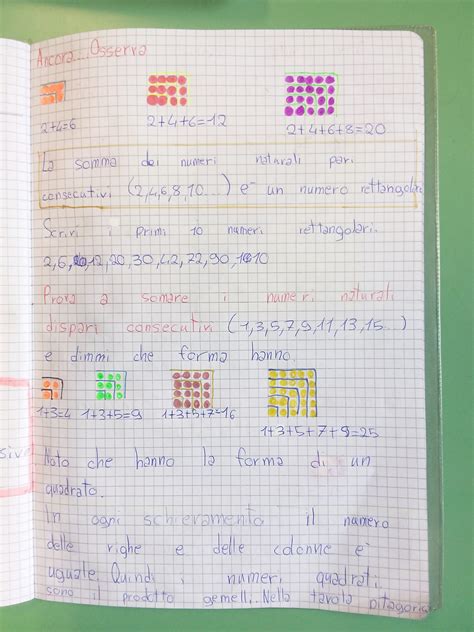 Ancora... Osserva
2+4=6
2+4+6=12
2+4+6+8=20
La somma dei numeri naturali pari
consecutivi (2,4,6,8,10...) è un numero rettangolare
Scrivi i primi 10 numeri rettangolari.
2,6, 12,20,30,42,72,90,
Prova a somare i numeri naturali
dispari consecutivi (1,3,5,7,9,11,13,15...)
e dimmi che forma hanno.
1+3=4
1+3+5=9
1+3+5+7=16
1+3+5+7+9=25
Noto che hanno la forma di un
quadrato.
In ogni schieramento il numero
delle righe e delle colonne è
uguale. Quindi i numeri quadrati
sono il prodotto gemelli. Nella tavola pitagorica